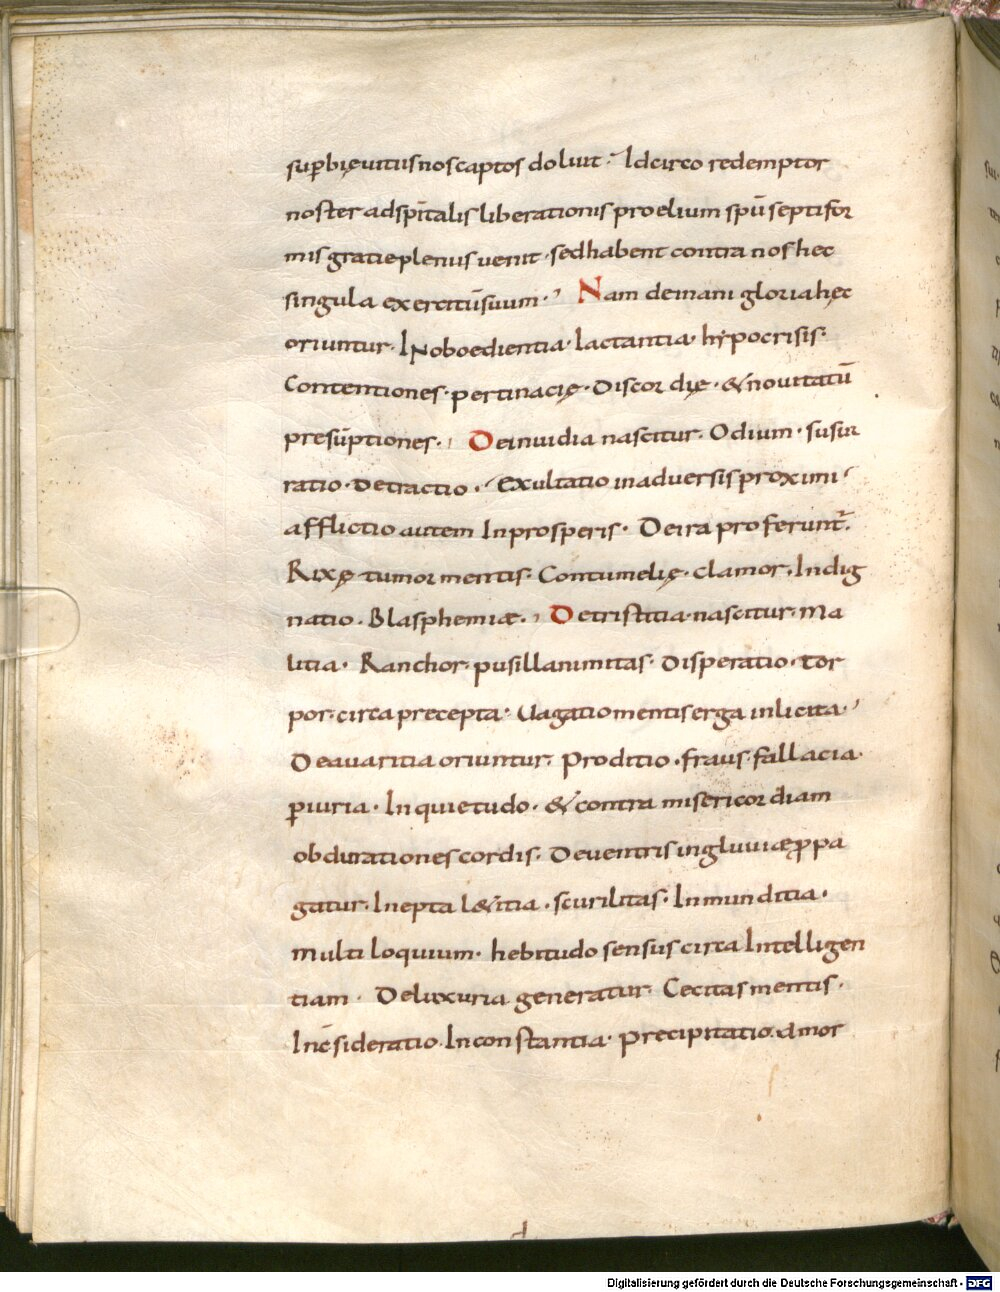 sup̄bię uitiis nos captos doluit · Idcirco redemptor
noster ad sp̄italis liberationis proelium spū septifor
mis gratie plenus uenit · sed habent contra nos hec
singula exercitū suum · Nam de inani gloria hęc
oriuntur · INoboedientia · Iactantia · hẏpocrisis ·
Contentiones · pertinacię · Discordię · & nouitatū
presūptiones · De inuidia nascitur · Odium · susur
ratio · Detractio · Exultatio in aduersis proximi
afflictio autem In prosperis · De ira proferunt̄ ·
Rixę tumor mentis · Contumelię · clamor · Indig
natio · Blasphemiæ · De tristitia nascitur · ma
litia · Ranchor · pusillanimitas · Disperatio · tor
por · circa precepta · Uagatio mentis erga inlicita ·
De auaritia oriuntur · Proditio · fraus · fallacia ·
p̱iuria · Inquietudo · & contra misericordiam
obdurationes cordis · De uentris ingluuiæ ꝓpa
gatur · Inepta l&itia · scurilitas · Inmunditia ·
multiloquium · hebitudo sensus circa Intelligen
tiam · De luxuria generatur · Cecitas mentis ·
Inc̄sideratio · Inconstantia · precipitatio · Amor
Digitalisierung gefördert durch die Deutsche Forschungsgemeinschaft - DFG